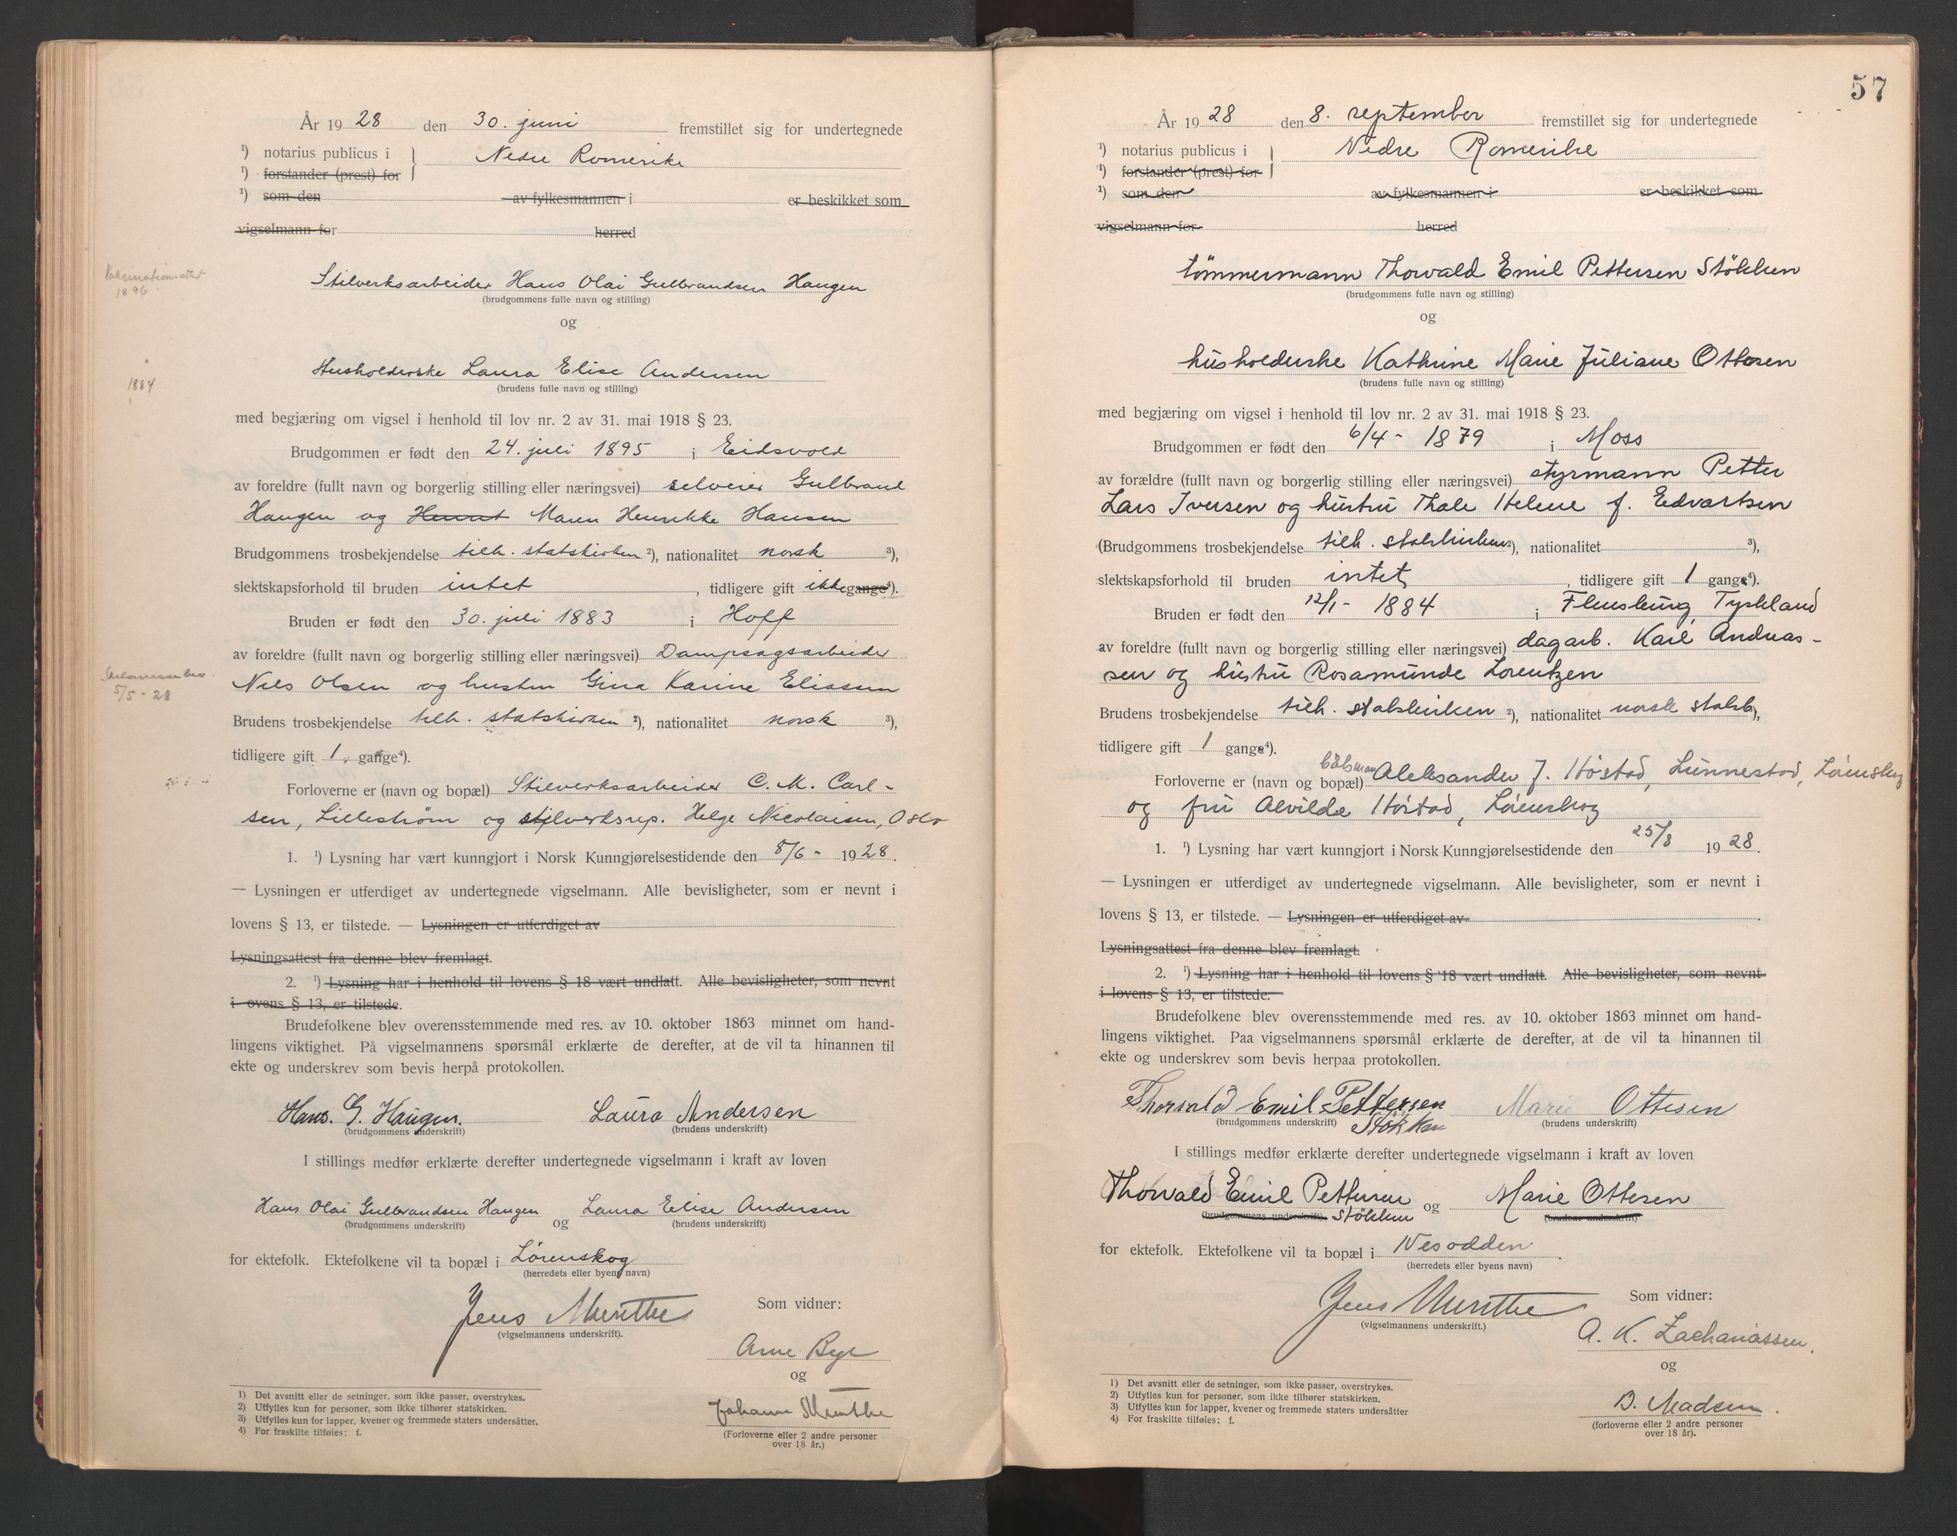 År 1928 den 30. juni fremstillet sig for undertegnede
¹) notarius publicus i Nedre Romerike
¹) forstander (prest) for
¹) som den av fylkesmannen i er beskikket som
vigselmann for herred
Vaksinationsattest
1896
Stilverksarbeider Hans Olai Gulbrandsen Haugen
(brudgommens fulle navn og stilling)
og
1884
Husholderske Laura Elise Andersen
(brudens fulle navn og stilling)
med begjæring om vigsel i henhold til lov nr. 2 av 31. mai 1918 § 23.
Brudgommen er født den 24. juli 1895 i Eidsvold
av foreldre (fullt navn og borgerlig stilling eller næringsvei) selveier Gulbrand
Haugen og Maren Henrikke Hansen
Brudgommens trosbekjendelse tilh. statskirken ²), nationalitet norsk ³),
slektskapsforhold til bruden intet, tidligere gift ikke gange⁴).
Bruden er født den 30. juli 1883 i Hoff
av foreldre (fullt navn og borgerlig stilling eller næringsvei) Dampsagsarbeider
Nils Olsen og hustru Gina Karine Eliassen
5/5 - 28
Brudens trosbekjendelse tilh. statskirken ²), nationalitet norsk ³),
tidligere gift 1 gange⁴).
Forloverne er (navn og bopæl) Stilverksarbeider C. M. Carl-
sen, Lillestrøm og stilverksrep. Helge Nicolaisen, Oslo
1. ¹) Lysning har vært kunngjort i Norsk Kunngjørelsestidende den 8/6 - 1928.
— Lysningen er utferdiget av undertegnede vigselmann. Alle bevisligheter, som er nevnt i
lovens § 13, er tilstede. — Lysningen er utferdiget av
Lysningsattest fra denne blev fremlagt.
2. ¹) Lysning har i henhold til lovens § 18 vært undlatt. Alle bevisligheter, som nevnt
i ovens § 13, er tilstede.
Brudefolkene blev overensstemmende med res. av 10. oktober 1863 minnet om hand-
lingens viktighet. På vigselmannens spørsmål erklærte de derefter, at de vil ta hinannen til
ekte og underskrev som bevis herpå protokollen.
Hans. G. Haugen. Laura Andersen
(brudgommens underskrift) (brudens underskrift)
I stillings medfør erklærte derefter undertegnede vigselmann i kraft av loven
Hans Olai Gulbrandsen Haugen og Laura Elise Andersen
(brudgommens underskrift) (brudens underskrift)
for ektefolk. Ektefolkene vil ta bopæl i Lørenskog
(herredets eller byens navn)
Jens Munthe
(vigselmannens underskrift).
Som vidner:
Arne Bye
og
Johanne Munthe
(Forloverne eller 2 andre personer
over 18 år.)
1) Det avsnitt eller de setninger, som ikke passer, overstrykes.
2) Utfylles kun for personer, som ikke tilhører statskirken.
3) Utfylles kun for lapper, kvener og fremmede staters undersåtter.
4) For fraskilte tilføies: f.
57
År 1928 den 8. september fremstillet sig for undertegnede
¹) notarius publicus i Nedre Romerike
¹) forstander (prest) for
¹) som den av fylkesmannen i er beskikket som
vigselmann for herred
tømmermann Thorvald Emil Pettersen Stökken
(brudgommens fulle navn og stilling)
og
husholderske Kathrine Marie Juliane Ottesen
(brudens fulle navn og stilling)
med begjæring om vigsel i henhold til lov nr. 2 av 31. mai 1918 § 23.
Brudgommen er født den 6/4 - 1879 i Moss
av forældre (fullt navn og borgerlig stilling eller næringsvei) styrmann Petter
Lars Iversen og hustru Thale Helene f. Edvartsen
(Brudgommens trosbekjendelse tilh. statskirken ²), nationalitet ³),
slektskapsforhold til bruden intet, tidligere gift 1 gange⁴).
Bruden er født den 12/1 - 1884 i Flensburg, Tyskland
av foreldre (fullt navn og borgerlig stilling eller næringsvei) dagarb. Karl Andreas-
sen og hustru Rosamunde Lorentzen
Brudens trosbekjendelse tilh. statskirken ²), nationalitet norsk statsb),
tidligere gift 1 gange⁴).
Forloverne er (navn og bopæl) Aleksander J. Höstad, Lunnestad, Lörenskog
og fru Alvilde Höstad, Lörenskog
1. ¹) Lysning har vært kunngjort i Norsk Kunngjørelsestidende den 25/8 1928.
— Lysningen er utferdiget av undertegnede vigselmann. Alle bevisligheter, som er nevnt i
lovens § 13, er tilstede. — Lysningen er utferdiget av
Lysningsattest fra denne blev fremlagt.
2. ¹) Lysning har i henhold til lovens § 18 vært undlatt. Alle bevisligheter, som nevnt
i lovens § 13, er tilstede.
Brudefolkene blev overensstemmende med res. av 10. oktober 1863 minnet om hand-
lingens viktighet. Paa vigselmannens spørsmål erklærte de derefter, at de vil ta hinannen til
ekte og underskrev som bevis herpaa protokollen.
Thorvald Emil Pettersen Marie Ottesen
(brudgommens underskrift) Stökken (brudens underskrift)
I stillings medfør erklærte derefter undertegnede vigselmann i kraft av loven
Thorvald Emil Pettersen og Marie Ottesen
(brudgommens underskrift) Stökken (brudens underskrift)
for ektefolk. Ektefolkene vil ta bopæl i Nesodden.
(herredets eller byens navn)
Jens Munthe
(vigselmannens underskrift).
Som vidner:
A. K. Zachariassen.
og
B. Madsen.
(forloverne eller 2 andre personer
over 18 år).
1) Det avsnitt eller de setninger, som ikke passer, overstrykes.
2) Utfylles kun for personer, som ikke tilhører statskirken.
3) Utfylles kun for lapper, kvener og fremmede staters undersåtter
4) For fraskilte tilføies: f.